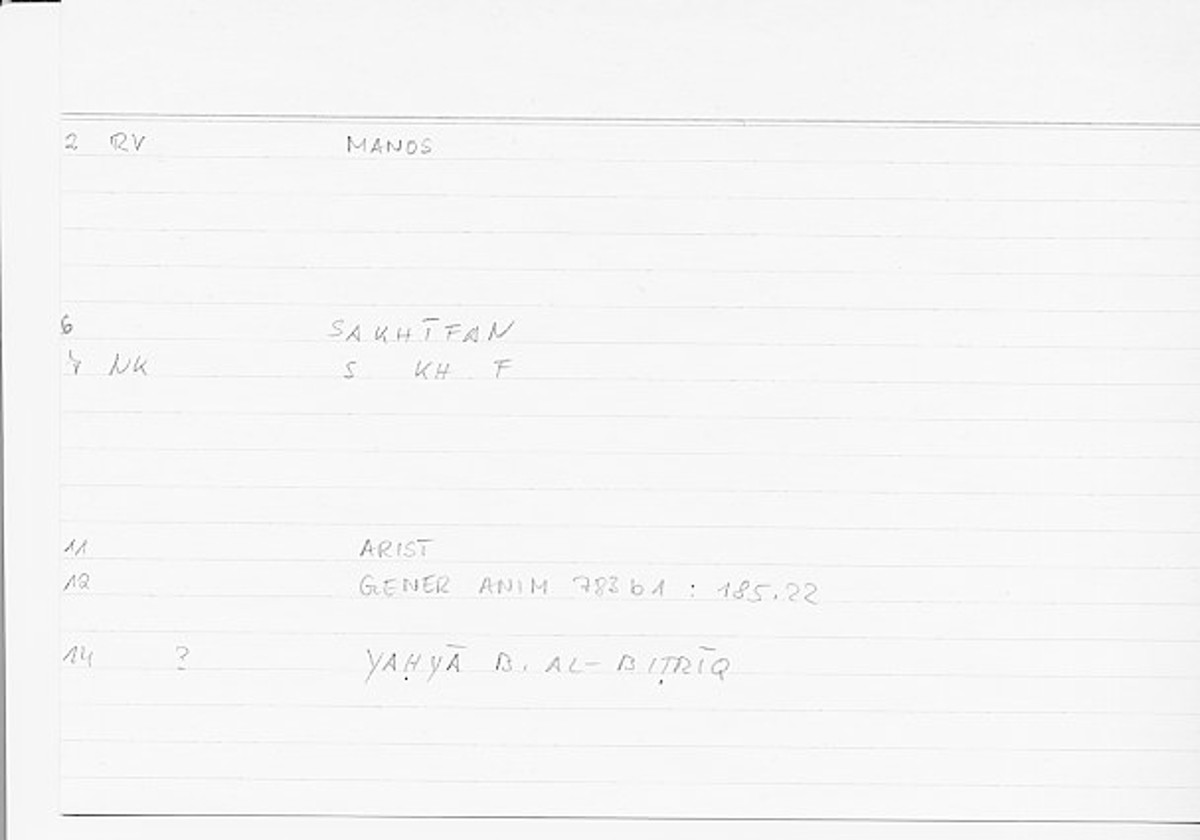 2 RV MANOS
6 SAKHĪFAN
7 NK S KH F
11 ARIST
12 GENER ANIM 783b1 : 185.22
14 ? YAḤYĀ B. AL-BIṬRĪQ